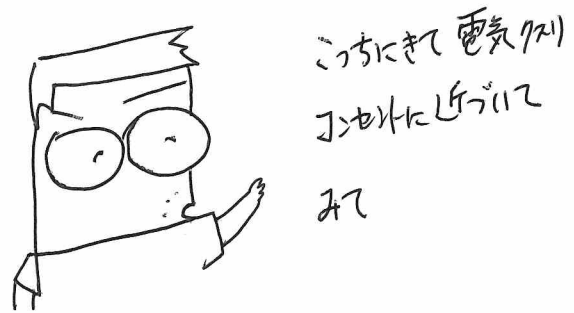 こっちにきて電気クスリ
コンセントに近づいて
みて